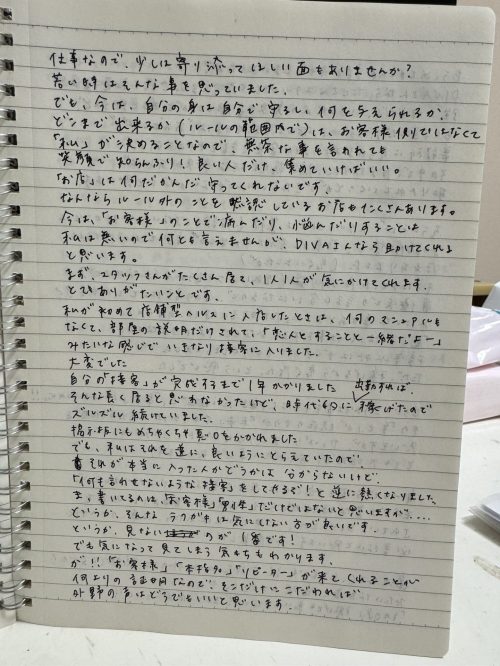 仕事なので、少しは寄り添ってほしい面もありませんか?
若い時はそんな事を思っていました。
でも、今は、自分の身は自分で守るし、何を与えられるか
どこまで出来るか(ルールの範囲内で)は、お客様側ではなくて
「私」が決めることなので、無茶な事を言われても
笑顔で知らんぷり!良い人だけ、集めていけばいい。
「お店」は何だかんだ守ってくれないです。
なんならルール外のことを黙認しているお店もたくさんあります。
今は、「お客様」のことで病んだり、悩んだりすることは
私は無いので何とも言えませんが、DIVAさんなら助けてくれる
と思います。
まず、スタッフさんがたくさん居て、1人1人が気にかけてくれます。
とてもありがたいことです。
私が初めて店舗型ヘルスに入店したときは、何のマニュアルも
なくて、部屋の説明だけされて、「恋人とすることと一緒だよー」
みたいな感じでいきなり接客に入りました。
大変でした
自分の「接客」が完成するまで1年かかりました
そんな長く居ると思わなかったけど、時代的に出勤すれば、稼げたので
ズルズル続けていました。
掲示板にもめちゃくちゃ悪口をかかれました
でも、私はそれを逆に、良いようにとらえていたので、
それが本当に入った人かどうかは分からないけど、
「何も言わせないような接客」をしてやるぞ!と逆に熱くなりました
ま、書いてるのは、「お客様」「男性」だけではないと思いますが....
というか、そんなラクガキは気にしない方が良いです。
というか、見ないのが1番です!
でも気になって見てしまう気もちもわかります。
が!!「お客様」「本指名」「リピーター」が来てくれることが
何よりの証明なので、そこだけにこだわれば
外野の声はどうでもいいと思います。